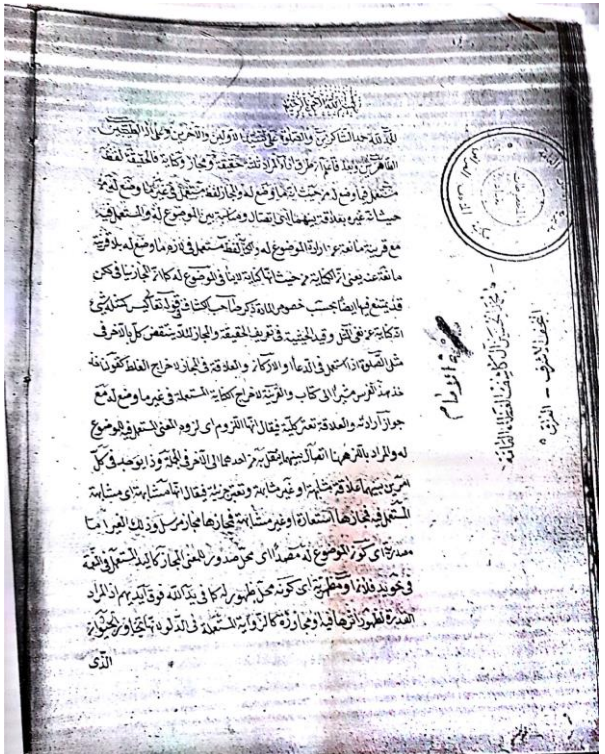 بسم الله الرحمن الرحيم
الحمد لله حمد الشاكرين والصلوة على سيد الاولين والآخرين وعلى آله الطيبين
الطاهرين وبعد فاعلم ان طرق اداء المراد ثلث حقيقة ومجاز وكناية فالحقيقة لفظ
مستعمل فيما وضع له من حيث انه ما وضع له والمجاز لفظ مستعمل في غير ما وضع له من
حيث انه غيره بعلاقة بينهما اى اتصال ومناسبة بين الموضوع له والمستعمل فيه
مع قرينة مانعة عن ارادة الموضوع له والكناية لفظ مستعمل في لازم ما وضع له بلا قرينة
مانعة عنه يعنى ان الكناية من حيث انها كناية لا ينافى الموضوع له كما ان المجاز ينافى لكن
قد يمتنع فيها ايضا بحسب خصوص المادة ذكر صاحب الكشاف في قوله تعالى ليس كمثله شىء
انه كناية عن نفى المثل وقيد الحيثية في تعريف الحقيقة والمجاز لئلا ينتقض كل بالآخر في
مثل الصلوة اذا استعمل في الدعاء والاركان والعلاقة في المجاز لاخراج الغلط كقولنا
خذ هذا الفرس مشيرا الى كتاب والقرينة لاخراج الكناية المستعملة في غير ما وضع له مع
جواز ارادته والعلاقة تعتبر كلية فيقال انها اللزوم اى لزوم المعنى المستعمل فيه للموضوع
له والمراد باللزوم هنا اتصال بينهما ينتقل به من احدهما الى الآخر في الجملة وذا يوجد في كل
امرين بينهما علاقة مشابهة او غير مشابهة وتعتبر جزئية فيقال انها مشابهة اى مشابهة
المستعمل فيه فمجازها استعارة او غير مشابهة فمجازها مجاز مرسل وذلك الغير اما
مصدرية اى كون الموضوع له مصدرا اى محل صدور للمعنى المجازى كاليد المستعمل في النعمة
في نحو يد فلان او مظهرية اى كونه محل ظهور له كما في يد الله فوق ايديهم اذ المراد
القدرة لظهور اثرها فيها او مجاورة كالراوية المستعملة في الدلو لانها تجاور الحيوان
الذى
مكتبة الامام
محمد الحسين آل كاشف الغطاء العامة
النجف الاشرف - العراق